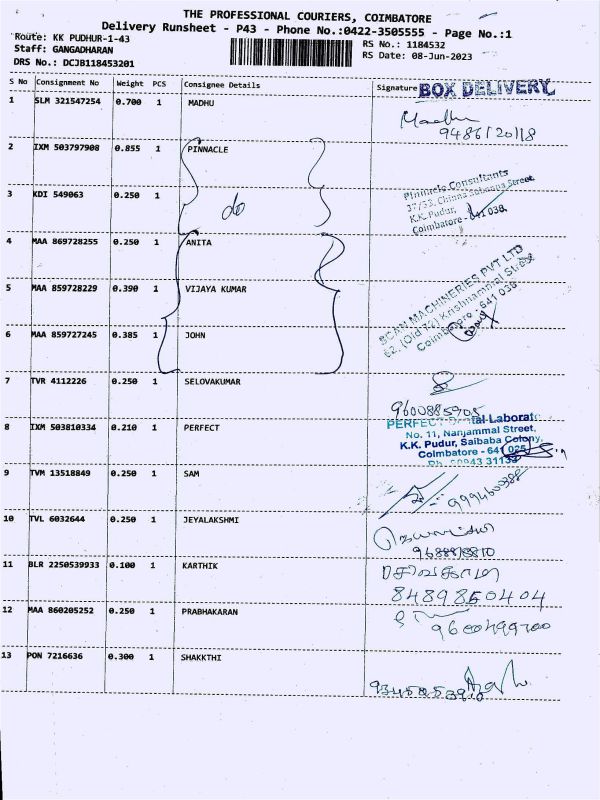 THE PROFESSIONAL COURIERS, COIMBATORE
Delivery Runsheet - P43 - Phone No.:0422-3505555 - Page No.:1
Route: KK PUDHUR-1-43
Staff: GANGADHARAN
DRS No.: DCJB118453201
RS No.: 1184532
RS Date: 08-Jun-2023
S No Consignment No Weight PCS Consignee Details Signature BOX DELIVERY
1 SLM 321547254 0.700 1 MADHU
Madhu
9486120118
2 IXM 503797908 0.855 1 PINNACLE
Pinnacle Consultants
37/53, Chinna Subanna Street,
K.K. Pudur,
Coimbatore - 641 038.
3 KDI 549063 0.250 1 do
4 MAA 869728255 0.250 1 ANITA
5 MAA 859728229 0.390 1 VIJAYA KUMAR
SCAN MACHINERIES PVT LTD
62, (Old 74) Krishnammal Street
Coimbatore - 641 038
6 MAA 859727245 0.385 1 JOHN
7 TVR 4112226 0.250 1 SELOVAKUMAR
9600885905
8 IXM 503810334 0.210 1 PERFECT
PERFECT Dental Laborato
No. 11, Nanjammal Street,
K.K. Pudur, Saibaba Colony,
Coimbatore - 641 025
Ph. 90943 31133
9 TVM 13518849 0.250 1 SAM
10 TVL 6032644 0.250 1 JEYALAKSHMI
ஜெயலட்சுமி
11 BLR 2250539933 0.100 1 KARTHIK
சிவகாமி
8489850404
12 MAA 860205252 0.250 1 PRABHAKARAN
13 PON 7216636 0.300 1 SHAKKTHI